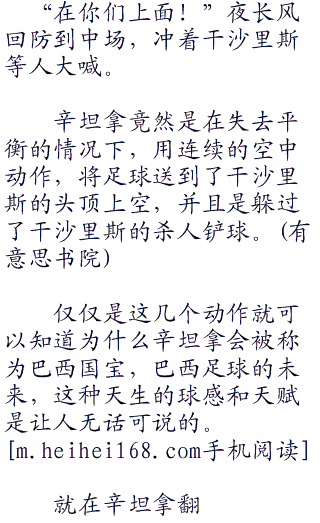 “在你们上面！”夜长风
回防到中场，冲着干沙里斯
等人大喊。
辛坦拿竟然是在失去平
衡的情况下，用连续的空中
动作，将足球送到了干沙里
斯的头顶上空，并且是躲过
了干沙里斯的杀人铲球。(有
意思书院)
仅仅是这几个动作就可
以知道为什么辛坦拿会被称
为巴西国宝，巴西足球的未
来，这种天生的球感和天赋
是让人无话可说的。
[m.heihei168.com手机阅读]
就在辛坦拿翻